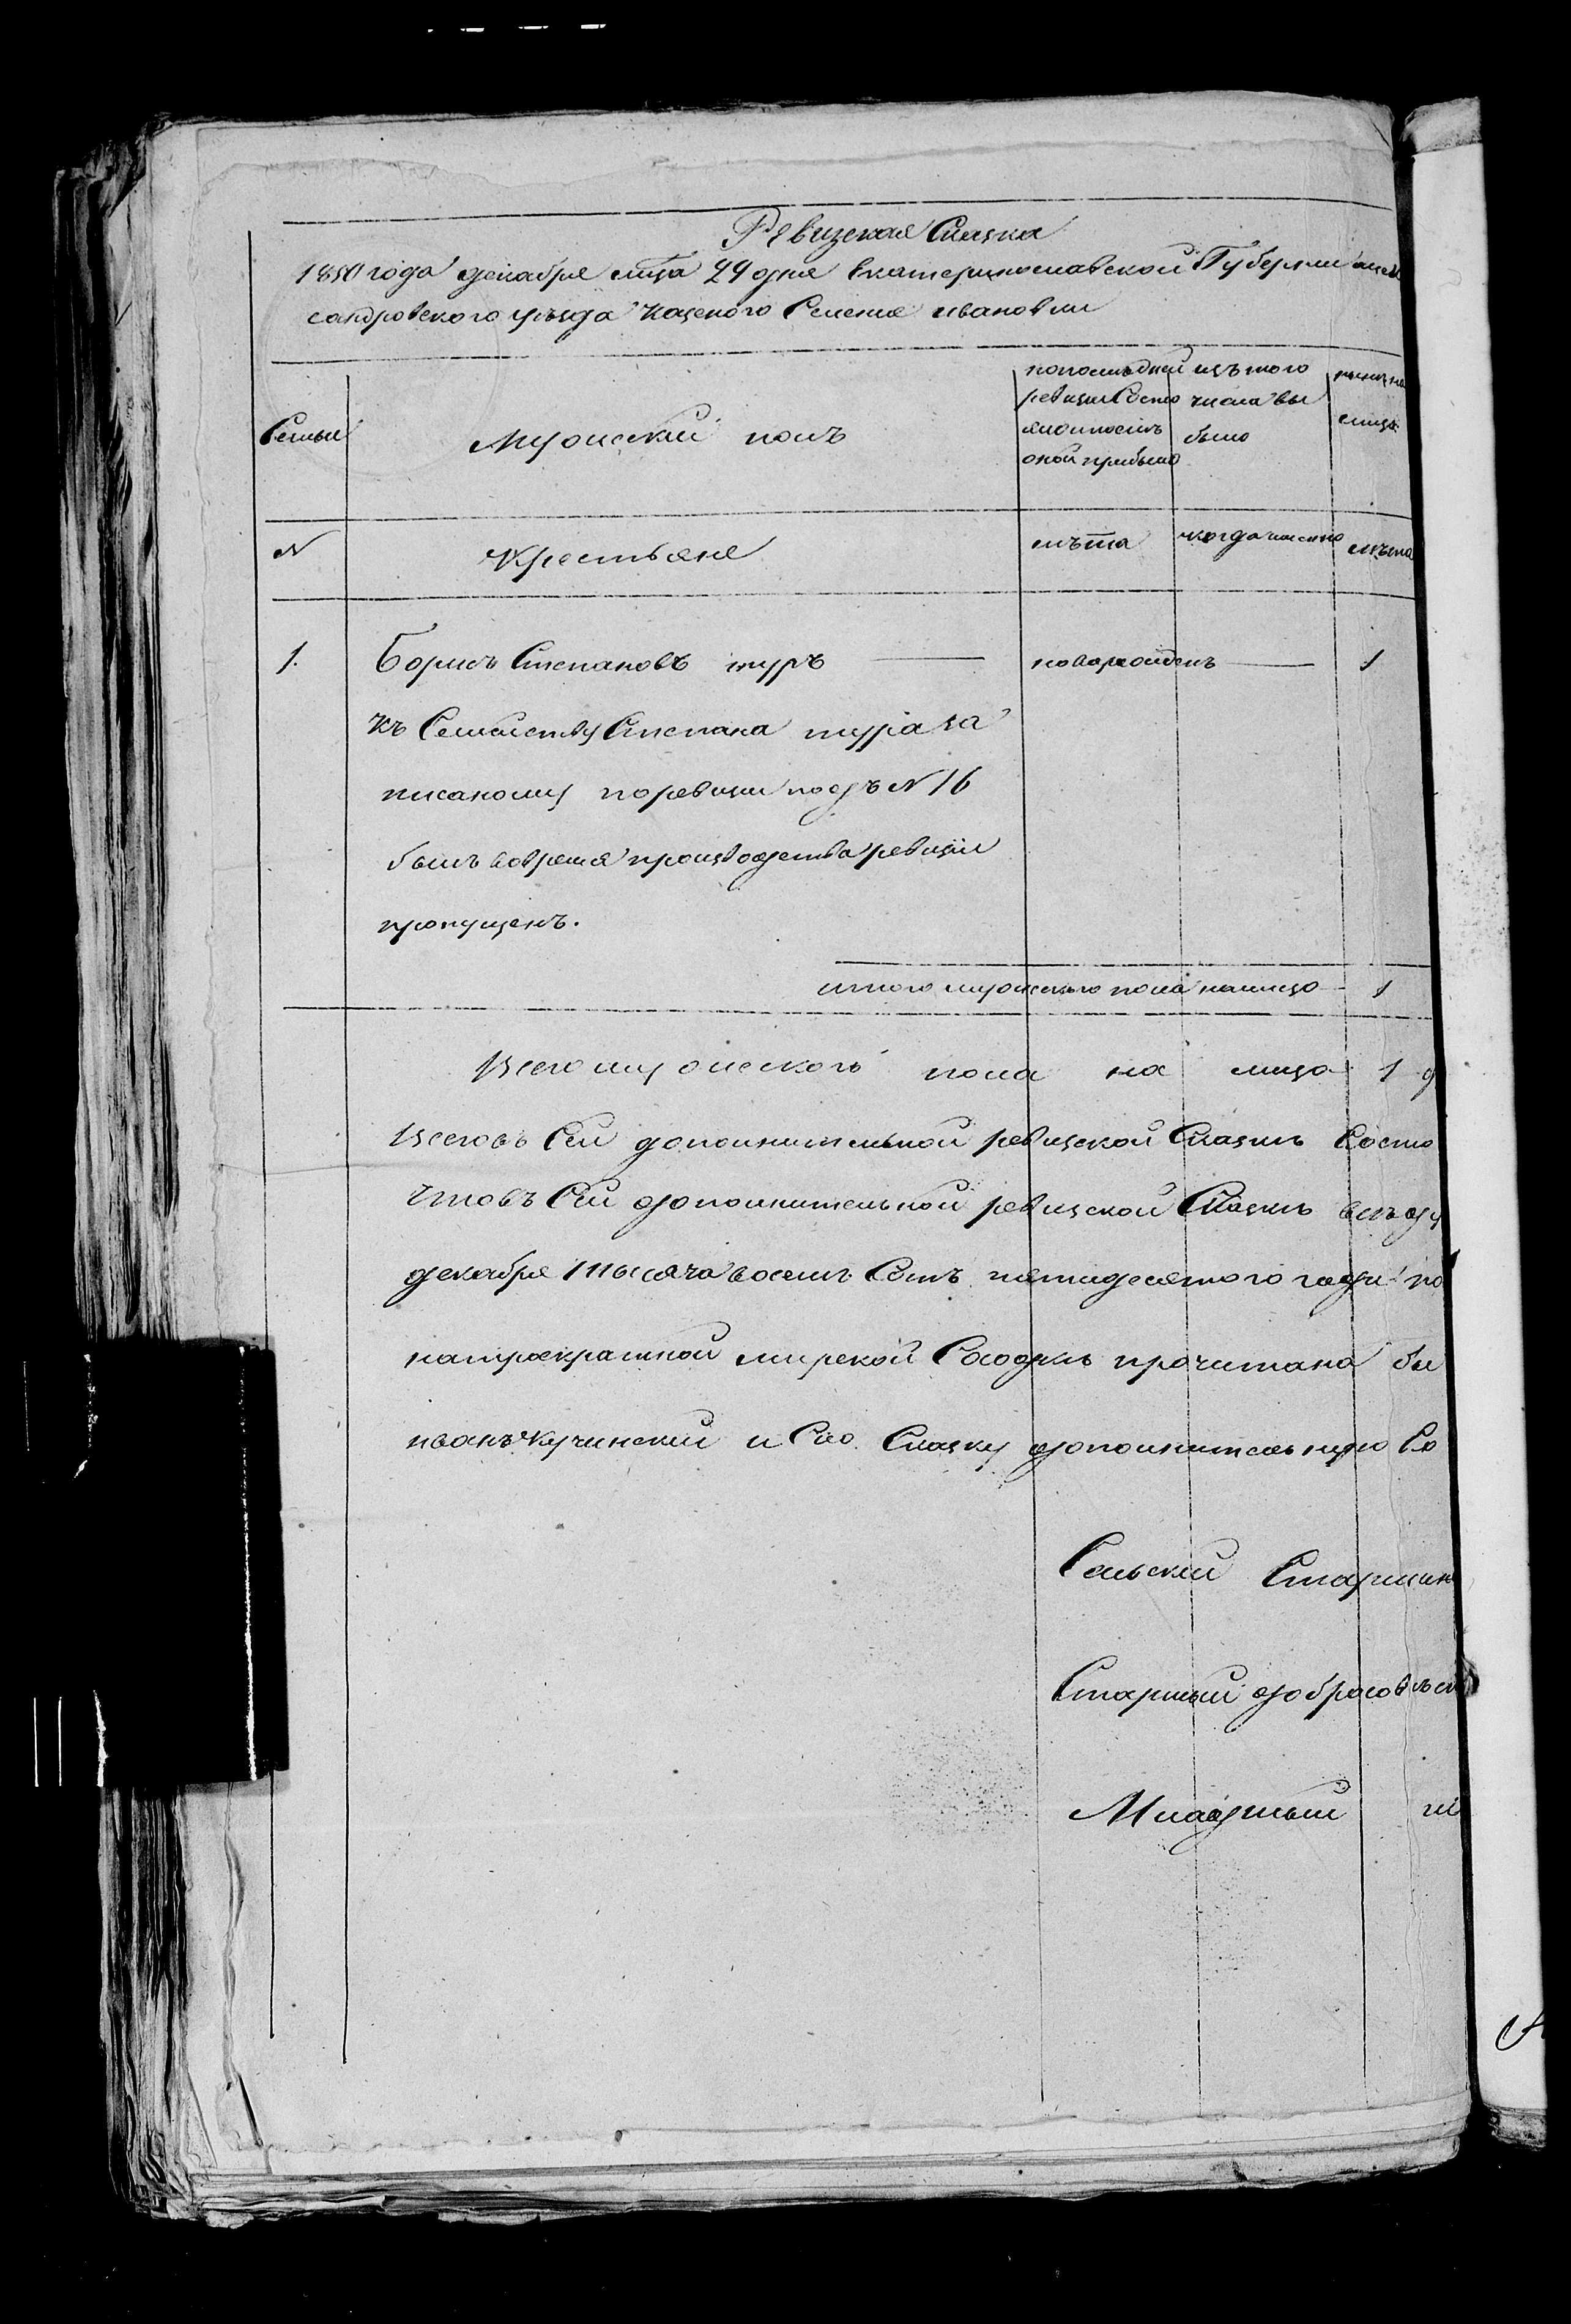 Ревизская Сказка
1850 года декабря мца 29 дня Екатеринославской Губернии алек
сандровского уѣзда Казеного Селения ивановки
Семьи
Мужеский полъ
попоследней
ревизии Состо
яло и послѣ
оной прибыло
изъ того
числа вы
было
нынѣ на
лицо
N
Крестьяне
лѣта
когда именно
лѣта
1. Борисъ Степановъ туръ — новорожденъ — 1
къ Семейству Степана тура за
писаному поревизии подъ N 16
былъ вовремя производства ревизіи
пропущенъ.
итого мужеского пола налицо — 1
Всего мужеского пола на лицо 1 д
Всего въ Сей дополнительной ревизской Сказкѣ Состо
Что въ Сей дополнительной ревизской Сказкѣ всѣ ду
декабря тысяча восемь Сотъ пятидесятого года по
натроекратной мирской Сходкѣ прочитана бы
иванъ Кучинский и Сию Сказку дополнительную Со
Сельский Старшин
Старший добросовѣст
Младший